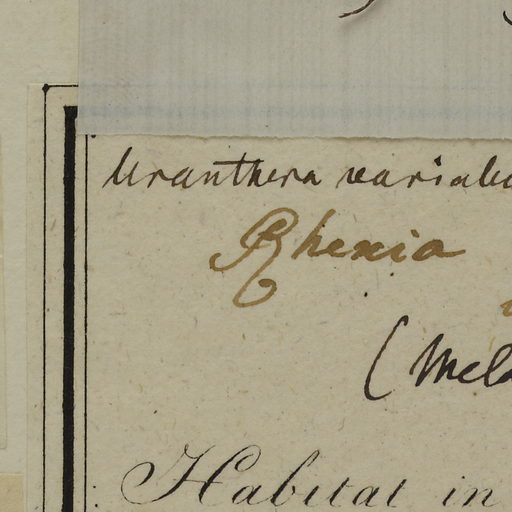 Uranthera variab
Rhexia
(Mela
Habitat in